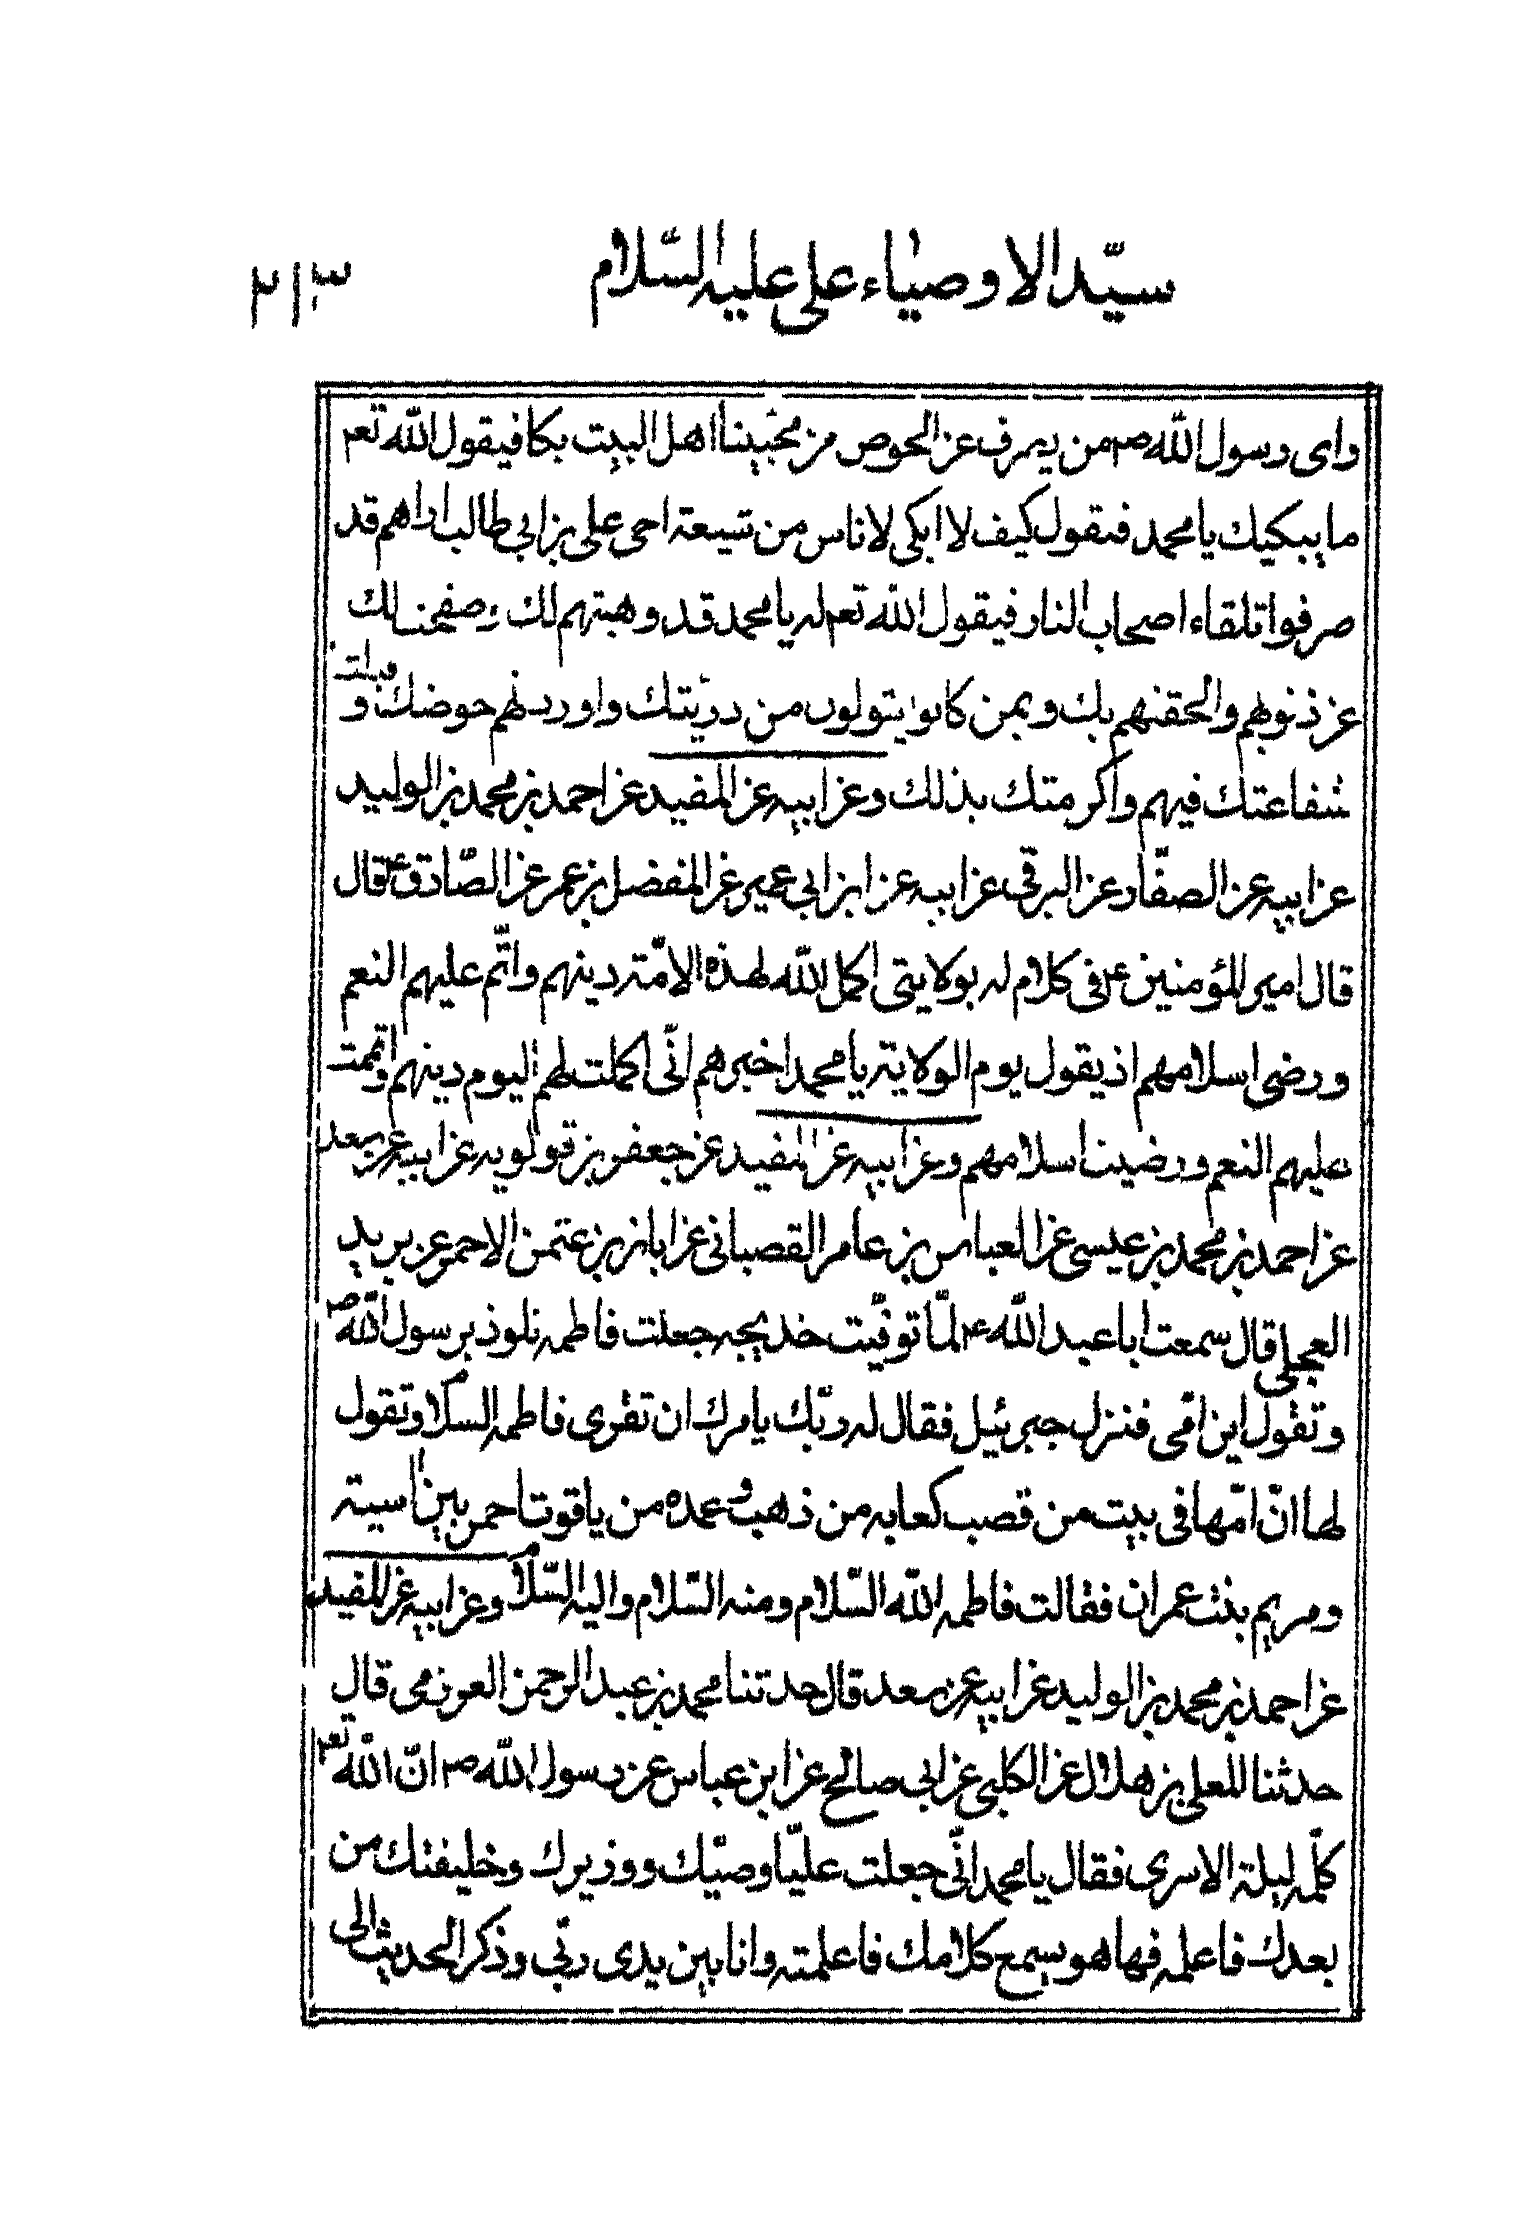 سيّد الاوصياء على عليه السّلام ٢١٣
راى رسول الله ص من يصرف عن الحوض من محبّينا اهل البيت بكا فيقول الله تعم
ما يبكيك يا محمد فيقول كيف لا ابكى لاناس من شيعة اخى على بن ابى طالب اراهم قد
صرفوا تلقاء اصحاب النار فيقول الله تعم له يا محمد قد وهبتهم لك وصفحنا لك
عن ذنوبهم والحقنهم بك وبمن كانوا يتولون من ذرّيّتك واوردتهم حوضك و قبلت
شفاعتك فيهم واكرمتك بذلك وعن ابيه عن المفيد عن احمد بن محمد بن الوليد
عن ابيه عن الصفّار عن البرقى عن ابيه عن ابن ابى عمير عن المفضل بن عمر عن الصّادق ع قال
قال امير المؤمنين ع فى كلام له بولايتى اكمل الله لهذه الامّة دينهم واتّم عليهم النعم
ورضى اسلامهم اذ يقول يوم الولاية يا محمد اخبرهم انّى اكملت لهم اليوم دينهم واتممت
عليهم النعم ورضيت اسلامهم وعن ابيه عن المفيد عن جعفر بن قولويه عن ابيه عن سعد
عن احمد بن محمد بن عيسى عن العباس بن عامر القصبانى عن ابان بن عثمن الاحمر عن بريد
العجلى قال سمعت ابا عبد الله ع لمّا توفّيت خديجه جعلت فاطمه تلوذ برسول الله ص
وتقول اين امّى فنزل جبرئيل فقال له ربّك يامرك ان تقرى فاطمه السلام وتقول
لها انّ امّها فى بيت من قصب كعابه من ذهب وعمده من ياقوت احمر بين اسيته
ومريم بنت عمران فقالت فاطمه الله السّلام ومنه السّلام واليه السّلام وعن ابيه عن المفيد
عن احمد بن محمد بن الوليد عن ابيه عن سعد قال حدثنا محمد بن عبد الرحمن العرزمى قال
حدثنا المعلى بن هلال عن الكلبى عن ابى صالح عن ابن عباس عن رسول الله ص انّ الله تعم
كلّمه ليلة الاسرى فقال يا محمد انّى جعلت عليّا وصيّك ووزيرك وخليفتك من
بعدك فاعلمه فها هو يسمع كلامك فاعلمته وانا بين يدى ربّى وذكر الحديث الى